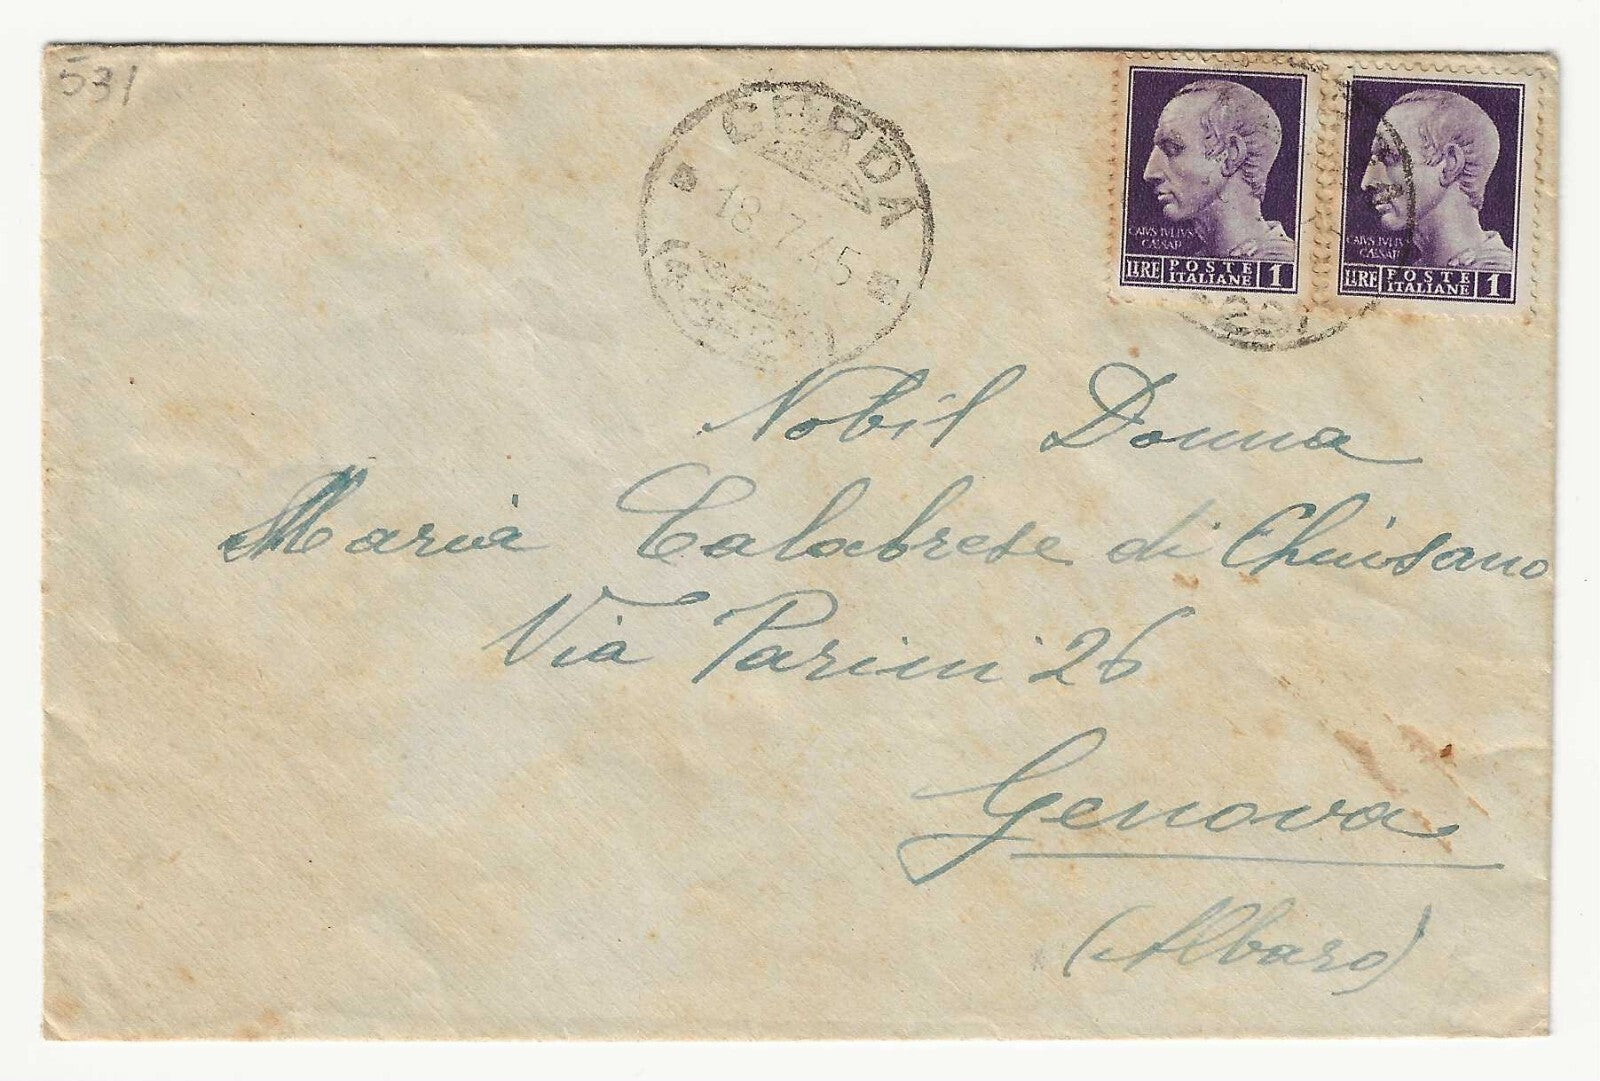 531
CERDA
18.7.45
CAIVS IVLIVS
CAESAR
LIRE POSTE ITALIANE 1
CAIVS IVLIVS
CAESAR
LIRE POSTE ITALIANE 1
Nobil Donna
Maria Calabrese di Chiusano
Via Parini 26
Genova
(Albaro)